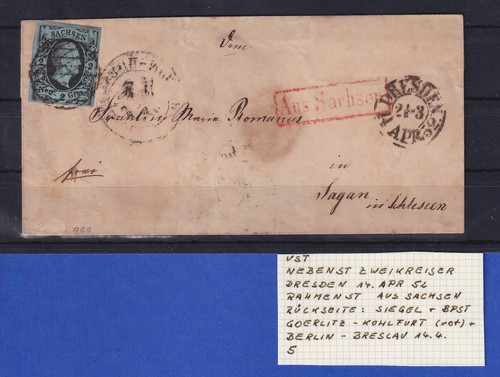 SACHSEN
Neu- 2 Grosch.
Dem
Aus Sachsen
DRESDEN
APR. 52
Fräulein Marie Romanus
in
Sagan
in Schlesien
frei
VST
NEBENST ZWEIKREISER
DRESDEN 14. APR 52
RAHMENST AUS SACHSEN
RÜCKSEITE: SIEGEL + BPST
GOERLITZ - KOHLFURT (rot) +
BERLIN - BRESLAU 14.4.
5